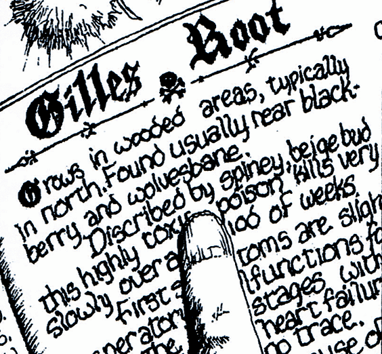 Gilles Root
Grows in wooded areas, typically
in north. Found usually near black-
berry, and wolvesbane.
Discribed by spiney, beige bud
this highly toxic poison kills very
slowly over a 100 of weeks.
First s toms are sligh
enerator lfunctions fo
the stages, with
heart failur
no trace.
use of